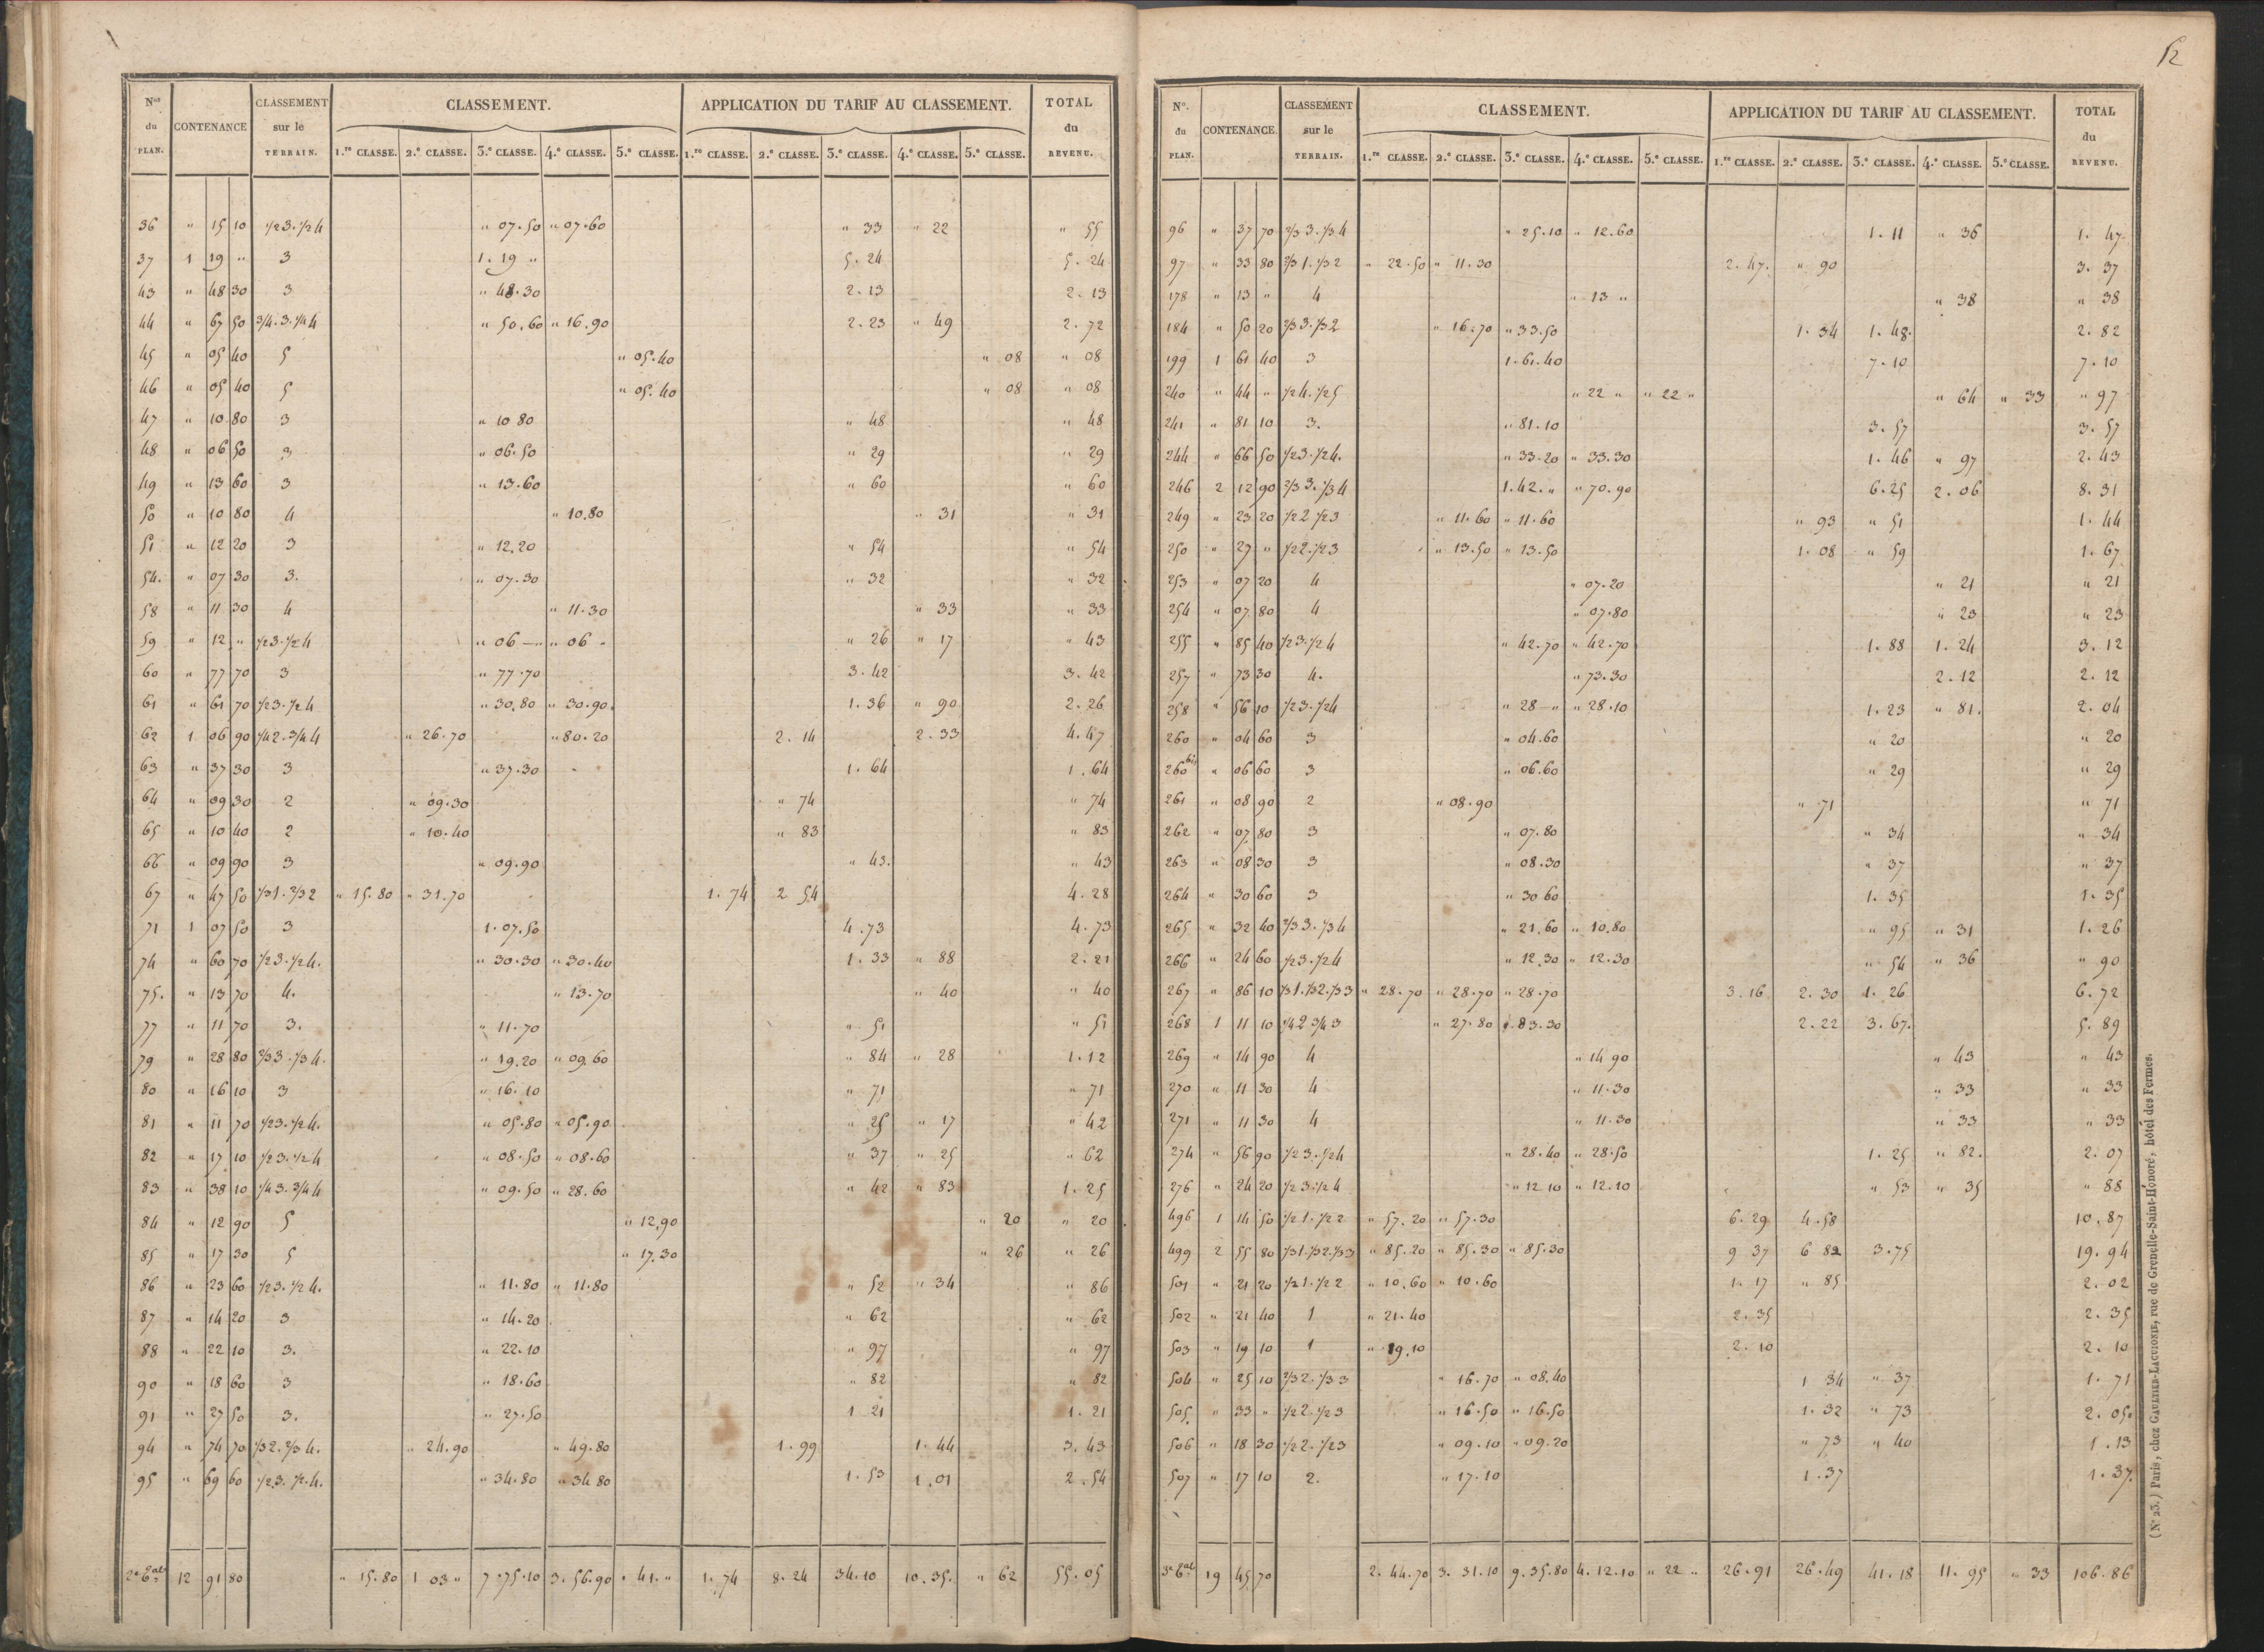 52
Nos du PLAN. CONTENANCE CLASSEMENT sur le TERRAIN. CLASSEMENT. APPLICATION DU TARIF AU CLASSEMENT. TOTAL du REVENU.
1.re CLASSE. 2.e CLASSE. 3.e CLASSE. 4.e CLASSE. 5.e CLASSE. 1.re CLASSE. 2.e CLASSE. 3.e CLASSE. 4.e CLASSE. 5.e CLASSE.
36 " 15 10 1/2 3. 1/2 4 " 07.50 " 07.60 " 33 " 22 " 55
37 1 19 " 3 1. 19 " 5. 24 5. 24
43 " 48 30 3 " 48.30 2. 13 2. 13
44 " 67 50 3/4. 3. 1/4 4 " 50.60 " 16.90 2. 23 " 49 2. 72
45 " 05 40 5 " 05.40 " 08 " 08
46 " 05 40 5 " 05.40 " 08 " 08
47 " 10 80 3 " 10 80 " 48 " 48
48 " 06 50 3 " 06.50 " 29 " 29
49 " 13 60 3 " 13.60 " 60 " 60
50 " 10 80 4 " 10.80 " 31 " 31
51 " 12 20 3 " 12.20 " 54 " 54
54. " 07 30 3. " 07.30 " 32 " 32
58 " 11 30 4 " 11.30 " 33 " 33
59 " 12 " 1/2 3. 1/2 4 " 06 — " 06 " " 26 " 17 " 43
60 " 77 70 3 " 77.70 3. 42 3. 42
61 " 61 70 1/2 3. 1/2 4 " 30.80 " 30.90 1. 36 " 90 2. 26
62 1 06 90 1/4 2. 3/4 4 " 26.70 " 80.20 2. 14 2. 33 4. 47
63 " 37 30 3 " 37.30 1. 64 1. 64
64 " 09 30 2 " 09.30 " 74 " 74
65 " 10 40 2 " 10.40 " 83 " 83
66 " 09 90 3 " 09.90 " 43. " 43
67 " 47 50 1/3 1. 2/3 2 " 15.80 " 31.70 1. 74 2 54 4. 28
71 1 07 50 3 1. 07.50 4. 73 4. 73
74 " 60 70 1/2 3. 1/2 4. " 30.30 " 30.40 1. 33 " 88 2. 21
75. " 13 70 4. " 13.70 " 40 " 40
77 " 11 70 3. " 11.70 " 51 " 51
79 " 28 80 2/3 3. 1/3 4. " 19.20 " 09.60 " 84 " 28 1. 12
80 " 16 10 3 " 16.10 " 71 " 71
81 " 11 70 1/2 3. 1/2 4. " 05.80 " 05.90 " 25 " 17 " 42
82 " 17 10 1/2 3. 1/2 4 " 08.50 " 08.60 " 37 " 25 " 62
83 " 38 10 1/4 3. 3/4 4 " 09.50 " 28.60 " 42 " 83 1. 25
84 " 12 90 5 " 12.90 " 20 " 20
85 " 17 30 5 " 17.30 " 26 " 26
86 " 23 60 1/2 3. 1/2 4. " 11.80 " 11.80 " 52 " 34 " 86
87 " 14 20 3 " 14.20 " 62 " 62
88 " 22 10 3. " 22.10 " 97 " 97
90 " 18 60 3 " 18.60 " 82 " 82
91 " 27 50 3. " 27.50 1 21 1. 21
94 " 74 70 1/3 2. 2/3 4. " 24.90 " 49.80 1. 99 1. 44 3. 43
95 " 69 60 1/2 3. 1/2. 4. " 34.80 " 34 80 1. 53 1. 01 2. 54
12 91 80 " 15.80 1 03 " 7.75.10 3. 56.90 " 41. " 1. 74 8. 24 34. 10 10. 35. " 62 55. 05
N°. du PLAN. CONTENANCE. CLASSEMENT sur le TERRAIN. CLASSEMENT. APPLICATION DU TARIF AU CLASSEMENT. TOTAL du REVENU.
1.re CLASSE. 2.e CLASSE. 3.e CLASSE. 4.e CLASSE. 5.e CLASSE. 1.re CLASSE. 2.e CLASSE. 3.e CLASSE. 4.e CLASSE. 5.e CLASSE.
96 " 37 70 2/3 3. 1/3 4 " 25.10 " 12.60 1. 11 " 36 1. 47
97 " 33 80 2/3 1. 1/3 2 " 22.50 " 11.30 2. 47. " 90 3. 37
178 " 13 " 4 " 13 " " 38 " 38
184 " 50 20 2/3 3. 1/3 2 " 16.70 " 33.50 1. 34 1. 48. 2. 82
199 1 61 40 3 1. 61. 40 7. 10 7. 10
240 " 44 " 1/2 4. 1/2 5 " 22 " " 22 " " 64 " 33 " 97
241 " 81 10 3. " 81.10 3. 57 3. 57
244 " 66 50 1/2 3. 1/2 4. " 33.20 " 33.30 1. 46 " 97 2. 43
246 2 12 90 2/3 3. 1/3 4 1. 42. " " 70.90 6. 25 2. 06 8. 31
249 " 23 20 1/2 2 1/2 3 " 11.60 " 11.60 " 93 " 51 1. 44
250 " 27 " 1/2 2. 1/2 3 " 13.50 " 13.50 1. 08 " 59 1. 67
253 " 07 20 4 " 07.20 " 21 " 21
254 " 07 80 4 " 07.80 " 23 " 23
255 " 85 40 1/2 3. 1/2 4 " 42.70 " 42.70 1. 88 1. 24 3. 12
257 " 73 30 4. " 73.30 2. 12 2. 12
258 " 56 10 1/2 3. 1/2 4 " 28 — " " 28.10 1. 23 " 81. 2. 04
260 " 04 60 3 " 04.60 " 20 " 20
260 bis " 06 60 3 " 06.60 " 29 " 29
261 " 08 90 2 " 08.90 " 71 " 71
262 " 07 80 3 " 07.80 " 34 " 34
263 " 08 30 3 " 08.30 " 37 " 37
264 " 30 60 3 " 30 60 1. 35 1. 35
265 " 32 40 2/3 3. 1/3 4 " 21.60 " 10.80 " 95 " 31 1. 26
266 " 24 60 1/2 3. 1/2 4 " 12.30 " 12.30 " 54 " 36 " 90
267 " 86 10 1/3 1. 1/3 2. 1/3 3 " 28.70 " 28.70 " 28.70 3. 16 2. 30 1. 26 6. 72
268 1 11 10 1/4 2 3/4 3 " 27.80 " 83.30 2. 22 3. 67. 5. 89
269 " 14 90 4 " 14 90 " 43 " 43
270 " 11 30 4 " 11.30 " 33 " 33
271 " 11 30 4 " 11.30 " 33 " 33
274 " 56 90 1/2 3. 1/2 4 " 28.40 " 28.50 1. 25 " 82. 2. 07
276 " 24 20 1/2 3. 1/2 4 " 12 10 " 12.10 " 53 " 35 " 88
496 1 14 50 1/2 1. 1/2 2 " 57. 20 " 57.30 6. 29 4. 58 10. 87
499 2 55 80 1/3 1. 1/3 2. 1/3 3 " 85.20 " 85.30 " 85.30 9 37 6 82 3. 75 19. 94
501 " 21 20 1/2 1. 1/2 2 " 10.60 " 10.60 1. 17 " 85 2. 02
502 " 21 40 1 " 21.40 2. 35 2. 35
503 " 19 10 1 " 19.10 2. 10 2. 10
504 " 25 10 2/3 2. 1/3 3 " 16.70 " 08.40 1 34 " 37 1. 71
505. " 33 " 1/2 2. 1/2 3 " 16.50 " 16.50 1. 32 " 73 2. 05.
506 " 18 30 1/2 2. 1/2 3 " 09.10 " 09.20 " 73 " 40 1. 13
507 " 17 10 2. " 17.10 1. 37 1. 37.
19 45 70 2. 44. 70 3. 31. 10 9. 35. 80 4. 12. 10 " 22 " 26. 91 26. 49 41. 18 11. 95 " 33 106. 86
(N° 23.) Paris, chez GAULTIER-LAGUIONIE, rue de Grenelle-Saint-Honoré, hôtel des Fermes.